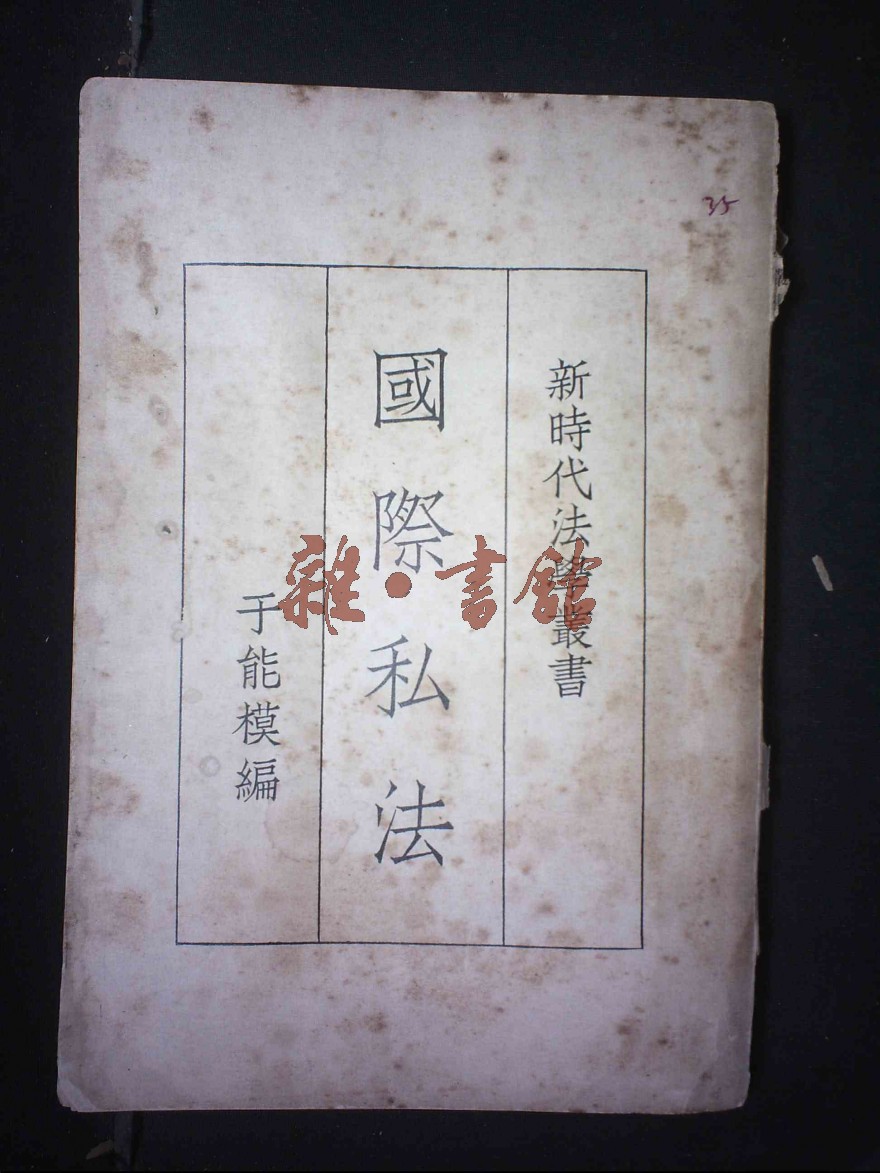 新時代法學叢書
國際私法
于能模編
35
雜·書館